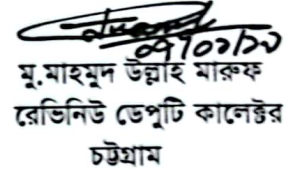 মু.মাহমুদ উল্লাহ মারুফ
রেভিনিউ ডেপুটি কালেক্টর
চট্টগ্রাম